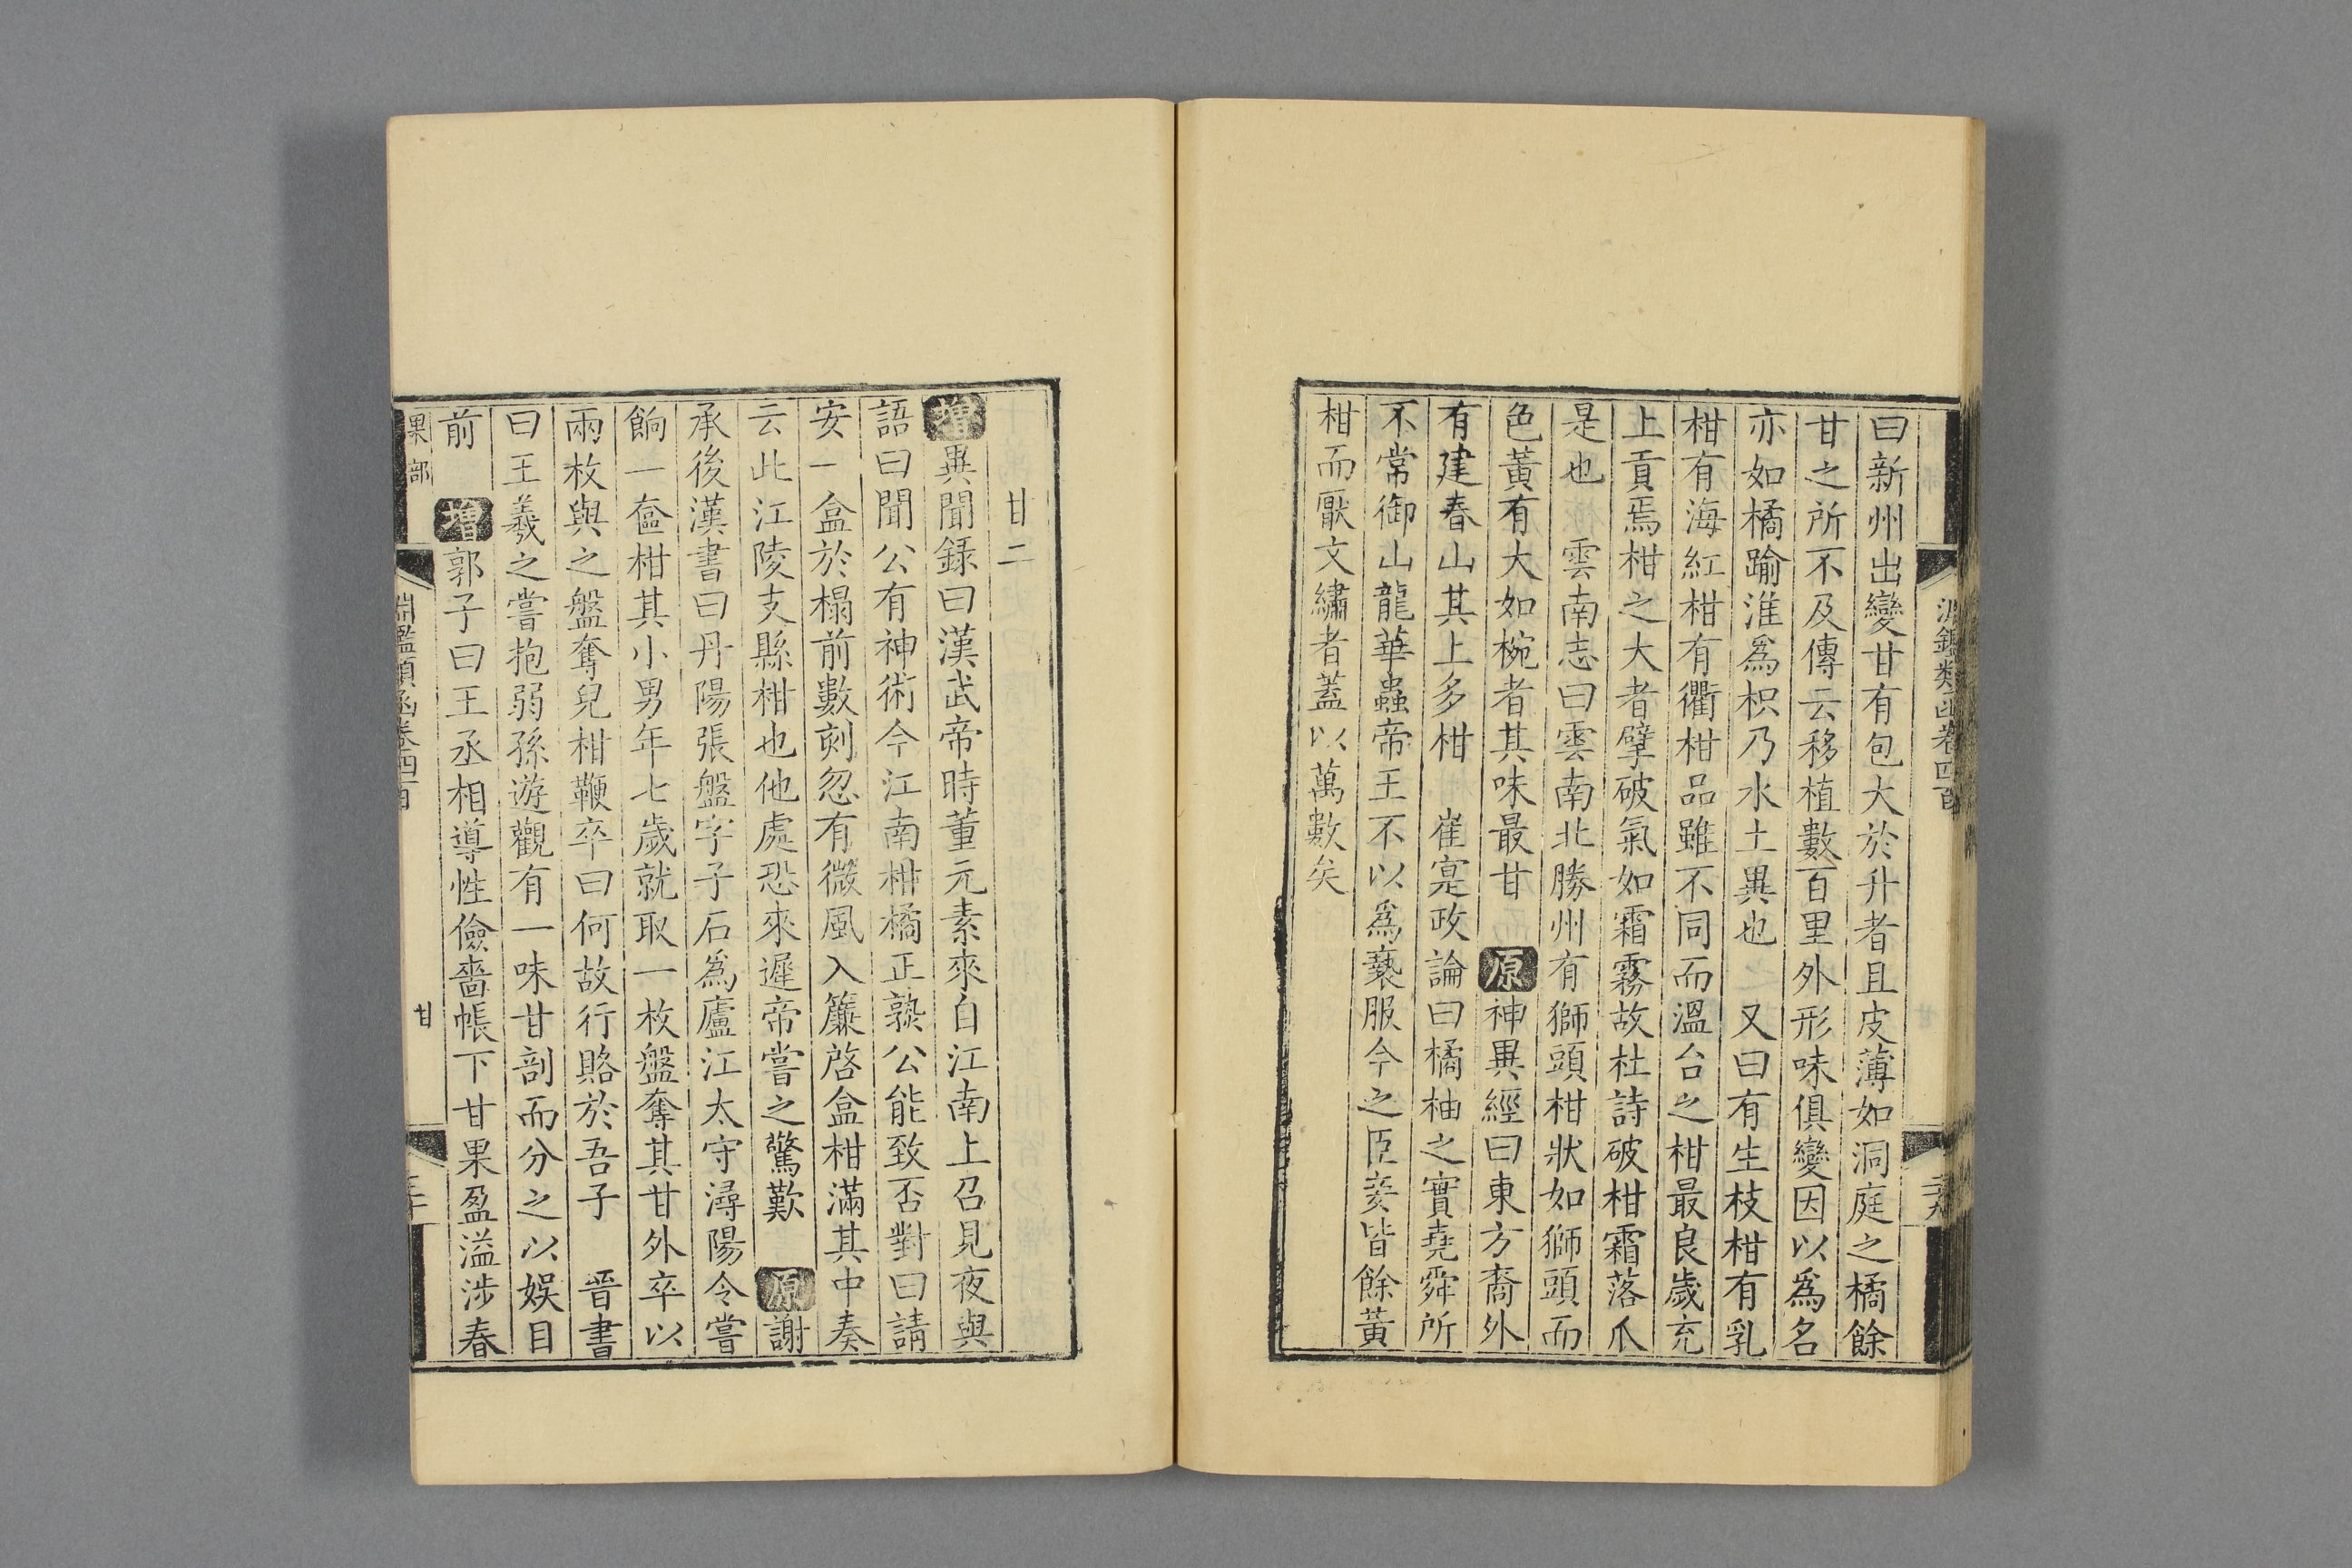 曰新州出變甘有包大於升者且皮薄如洞庭之橘餘
甘之所不及傳云移植數百里外形味俱變因以爲名
亦如橘踰淮爲枳乃水土異也　又曰有生枝柑有乳
柑有海紅柑有衢柑品雖不同而溫台之柑最良歲充
上貢焉柑之大者擘破氣如霜霧故杜詩破柑霜落爪
是也　雲南志曰雲南北勝州有獅頭柑狀如獅頭而
色黃有大如椀者其味最甘　原神異經曰東方裔外
有建春山其上多柑　崔寔政論曰橘柚之實堯舜所
不常御山龍華蟲帝王不以爲褻服今之臣妾皆餘黃
柑而厭文繡者蓋以萬數矣
甘二
增異聞録曰漢武帝時董元素來自江南上召見夜與
語曰聞公有神術今江南柑橘正熟公能致否對曰請
安一盒於榻前數刻忽有微風入簾啓盒柑滿其中奏
云此江陵支縣柑也他處恐來遲帝嘗之驚歎　原謝
承後漢書曰丹陽張盤字子石爲廬江太守潯陽令嘗
餉一奩柑其小男年七歲就取一枚盤奪其甘外卒以
兩枚與之盤奪兒柑鞭卒曰何故行賂於吾子　晉書
曰王羲之嘗抱弱孫遊觀有一味甘剖而分之以娱目
前　增郭子曰王丞相導性儉嗇帳下甘果盈溢涉春
果部
淵鑑類函卷四百
甘